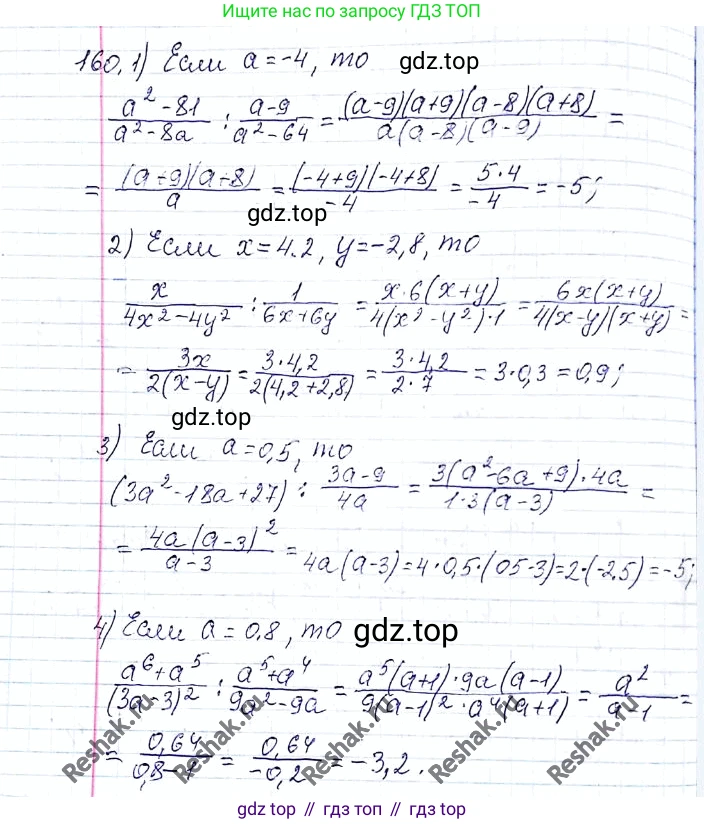 Ищите нас по запросу ГДЗ ТОП
160. 1) Если a = -4, то gdz.top
(a² - 81)/(a² - 8a) : (a - 9)/(a² - 64) = ((a-9)(a+9)(a-8)(a+8))/(a(a-8)(a-9)) =
= ((a+9)(a+8))/a = ((-4+9)(-4+8))/(-4) = (5·4)/(-4) = -5;
gdz.top
2) Если x = 4.2, y = -2,8, то
x/(4x² - 4y²) : 1/(6x + 6y) = (x·6(x+y))/(4(x² - y²)·1) = (6x(x+y))/(4(x-y)(x+y)) =
= 3x/(2(x-y)) = (3·4,2)/(2(4,2+2,8)) = (3·4,2)/(2·7) = 3·0,3 = 0,9;
gdz.top
3) Если a = 0,5, то
(3a² - 18a + 27) : (3a - 9)/(4a) = (3(a² - 6a + 9)·4a)/(1·3(a-3)) =
= (4a(a-3)²)/(a-3) = 4a(a-3) = 4·0,5·(05-3) = 2·(-2,5) = -5;
4) Если a = 0,8, то gdz.top
(a⁶ + a⁵)/(3a-3)² : (a⁵ + a⁴)/(9a² - 9a) = (a⁵(a+1)·9a(a-1))/(9(a-1)²·a⁴(a+1)) = a²/(a-1) =
= 0,64/(0,8-1) = 0,64/(-0,2) = -3,2.
Reshak.ru Reshak.ru Reshak.ru Reshak.ru
gdz top // гдз топ // гдз.top // gdz.top